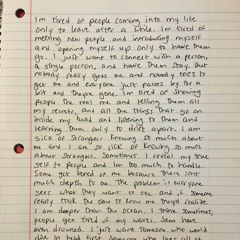 Im tired of people coming into my life
only to leave after a while. Im tired of
meeting new people and introducing myself
and opening myself up only to have them
go. I just want to connect with a person,
a single person, and have them stay. But
nobody really gets me and nobody tries to
get me and everyone just passes by for a
bit and they're gone. Im tired of showing
people the real me and telling them all
my secrets, and all the things that go on
inside my head and listening to them and
learning them only to drift apart. I am
sick of strangers knowing so much about
me and I am so sick of knowing so much
about strangers. Sometimes I reveal my true
self to people and Im too much to handle.
Some get bored of me because there isnt
much depths to me. The problem is everyone
sees what they want to see and if someone
really took the time to know me they'd realize
I am deeper than the ocean. I think sometimes,
people get tired of my waves. Some have
even drowned. I just want someone who would
dive in head first. Someone who